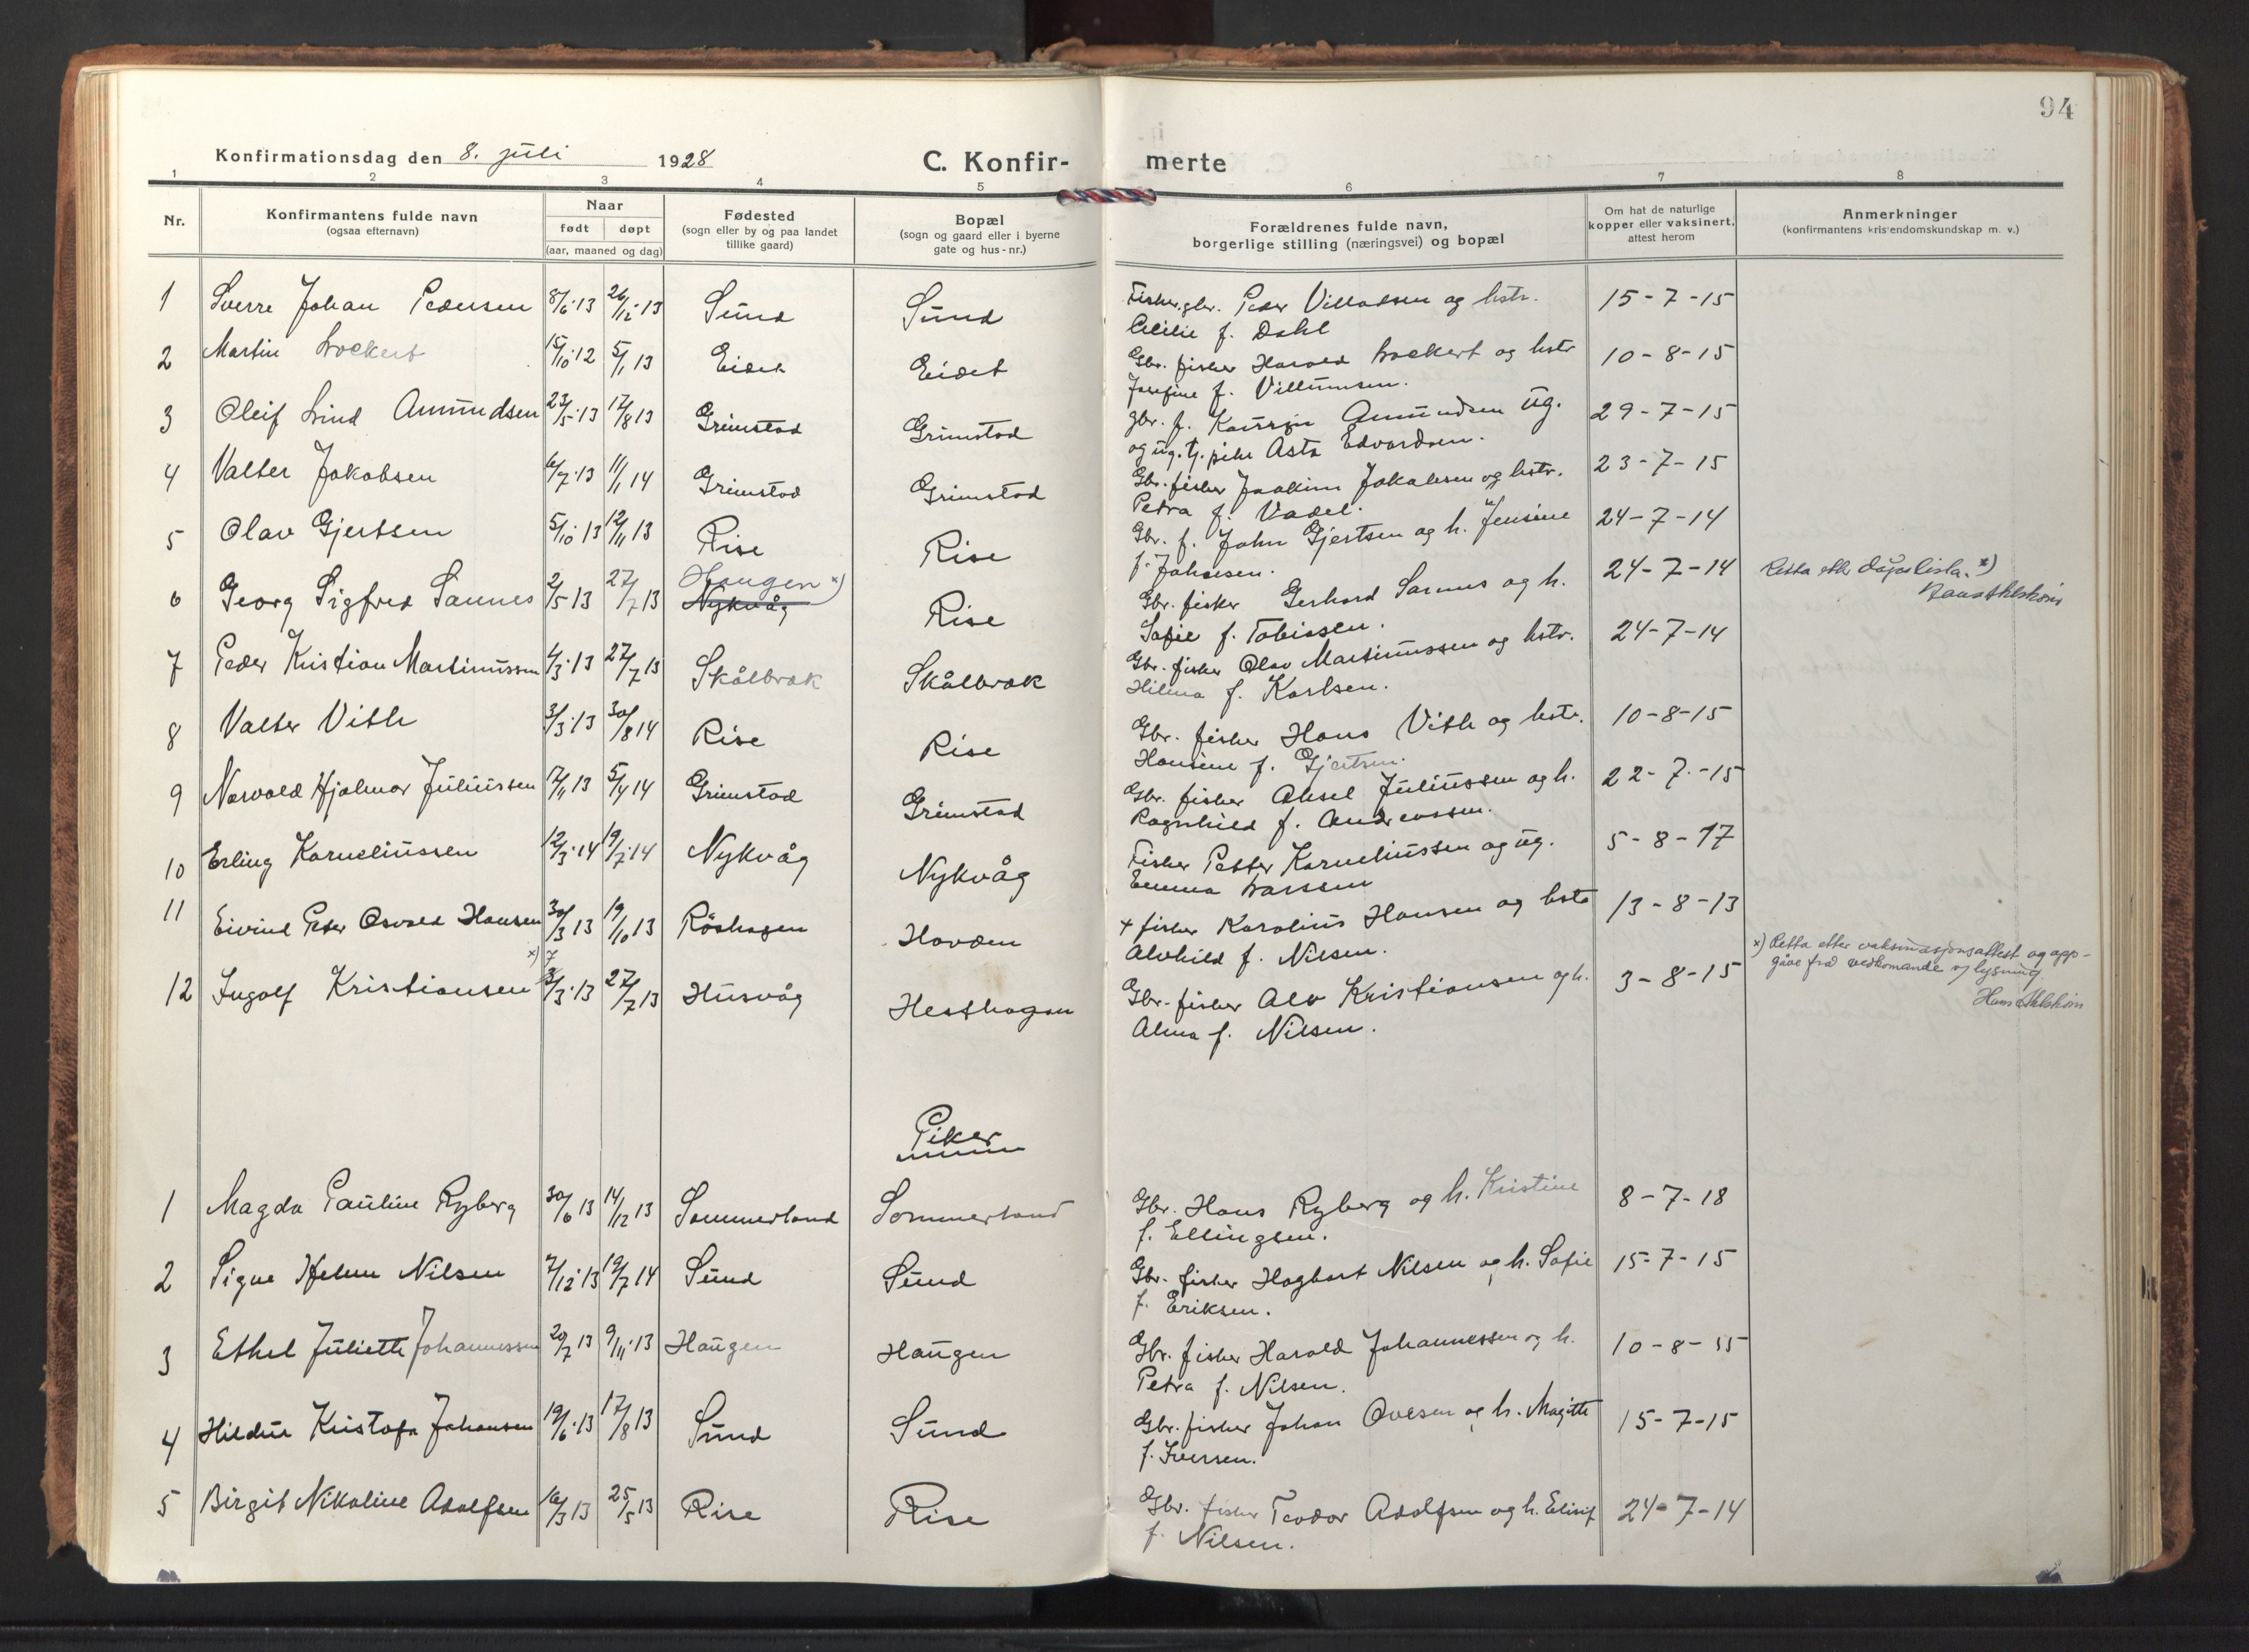 94
Konfirmationsdag den 8. juli 1928 C. Konfir- merte
1 2 3 4 5 6 7 8
Nr. Konfirmantens fulde navn (ogsaa efternavn) Naar født døpt (aar, maaned og dag) Fødested (sogn eller by og paa landet tillike gaard) Bopæl (sogn og gaard eller i byerne gate og hus-nr.) Forældrenes fulde navn, borgerlige stilling (næringsvei) og bopæl Om hat de naturlige kopper eller vaksinert, attest herom Anmerkninger (konfirmantens kristendomskundskap m. v.)
1 Sverre Johan Pedersen 8/6-13 26/12-13 Sund Sund Fisker, gbr. Peder Villadsen og hstr. 15-7-15
Cecilie f. Dahl
2 Martin Lockert 15/10-12 5/1 13 Eidet Eidet Gbr. fisker Harald Lockert og hstr 10-8-15
Josefine f. Villumsen.
3 Oleif Lind Amundsen 23/5-13 17/8 13 Grimstad Grimstad gbr. f. Amundsen ug. 29-7-15
og ug. tj. pike Asta Edvardsen.
4 Valter Jakobsen 6/7-13 11/1 14 Grimstad Grimstad Gbr. fisker Joakim Jakobsen og hstr. 23-7-15
Petra f. Vadel.
5 Olav Gjertsen 5/10 13 12/11 13 Rise Rise Gbr. f. John Gjertsen og h. Jensine 24-7-14
f. Johnsen.
6 Georg Sigfred Sannes 2/5 13 27/7 13 Haugen x) Nykvåg Rise Gbr. fisker Gerhard Sannes og h. 24-7-14 Retta etter dåpslista. x)
Sofie f. Tobiassen.
7 Peder Kristian Martinussen 4/3-13 27/7 13 Skålbrak Skålbrak Gbr. fisker Olav Martinussen og hstr. 24-7-14
Hilma f. Karlsen.
8 Valter Vith 3/3-13 30/8 14 Rise Rise Gbr. fisker Hans Vith og hstr. 10-8-15
Hansine f. Gjertsen.
9 Norvald Hjalmar Juliussen 17/11 13 5/4 14 Grimstad Grimstad Gbr. fisker Aksel Juliussen og h. 22-7-15
Ragnhild f. Andreassen.
10 Erling Korneliussen 12/3-14 19/7-14 Nykvåg Nykvåg Fisker Petter Korneliussen og ug. 5-8-17
Emma Larssen
11 Eivind Peder Osvald Hansen 30/3 13 19/10 13 Råshagen Hovden + fisker Karolius Hansen og hstr 13-8-13
Alvhild f. Nilsen.
x) 7
12 Ingolf Kristiansen /3-13 27/7 13 Husvåg Hesthagen Gbr. fisker Alv Kristiansen og h. 3-8-15 x) Retta etter vaksinasjonsattest og opp-
gåve frå vedkomande og lysning
Alma f. Nilsen.
Piker
1 Magda Pauline Ryberg 30/6 13 14/12 13 Sommerland Sommerland Gbr. Hans Ryberg og h. Kristine 8-7-18
f. Ellingsen.
2 Signe Helene Nilsen 7/12-13 19/7 14 Sund Sund Gbr. fisker Hagbart Nilsen og h. Sofie 15-7-15
f. Eriksen.
3 Ethel Juliette Johannessen 20/7 13 9/11-13 Haugen Haugen Gbr. fisker Harald Johannessen og h. 10-8-15
Petra f. Nilsen.
4 Hildur Kristofa Johansen 19/6-13 17/8 13 Sund Sund Gbr. fisker Johan Ovesen og h. Magitte 15-7-15
f. Iversen.
5 Birgit Nikoline Adolfsen 16/3 13 25/5 13 Rise Rise Gbr. fisker Teodor Adolfsen og h. Elisif 24-7-14
f. Nilsen.